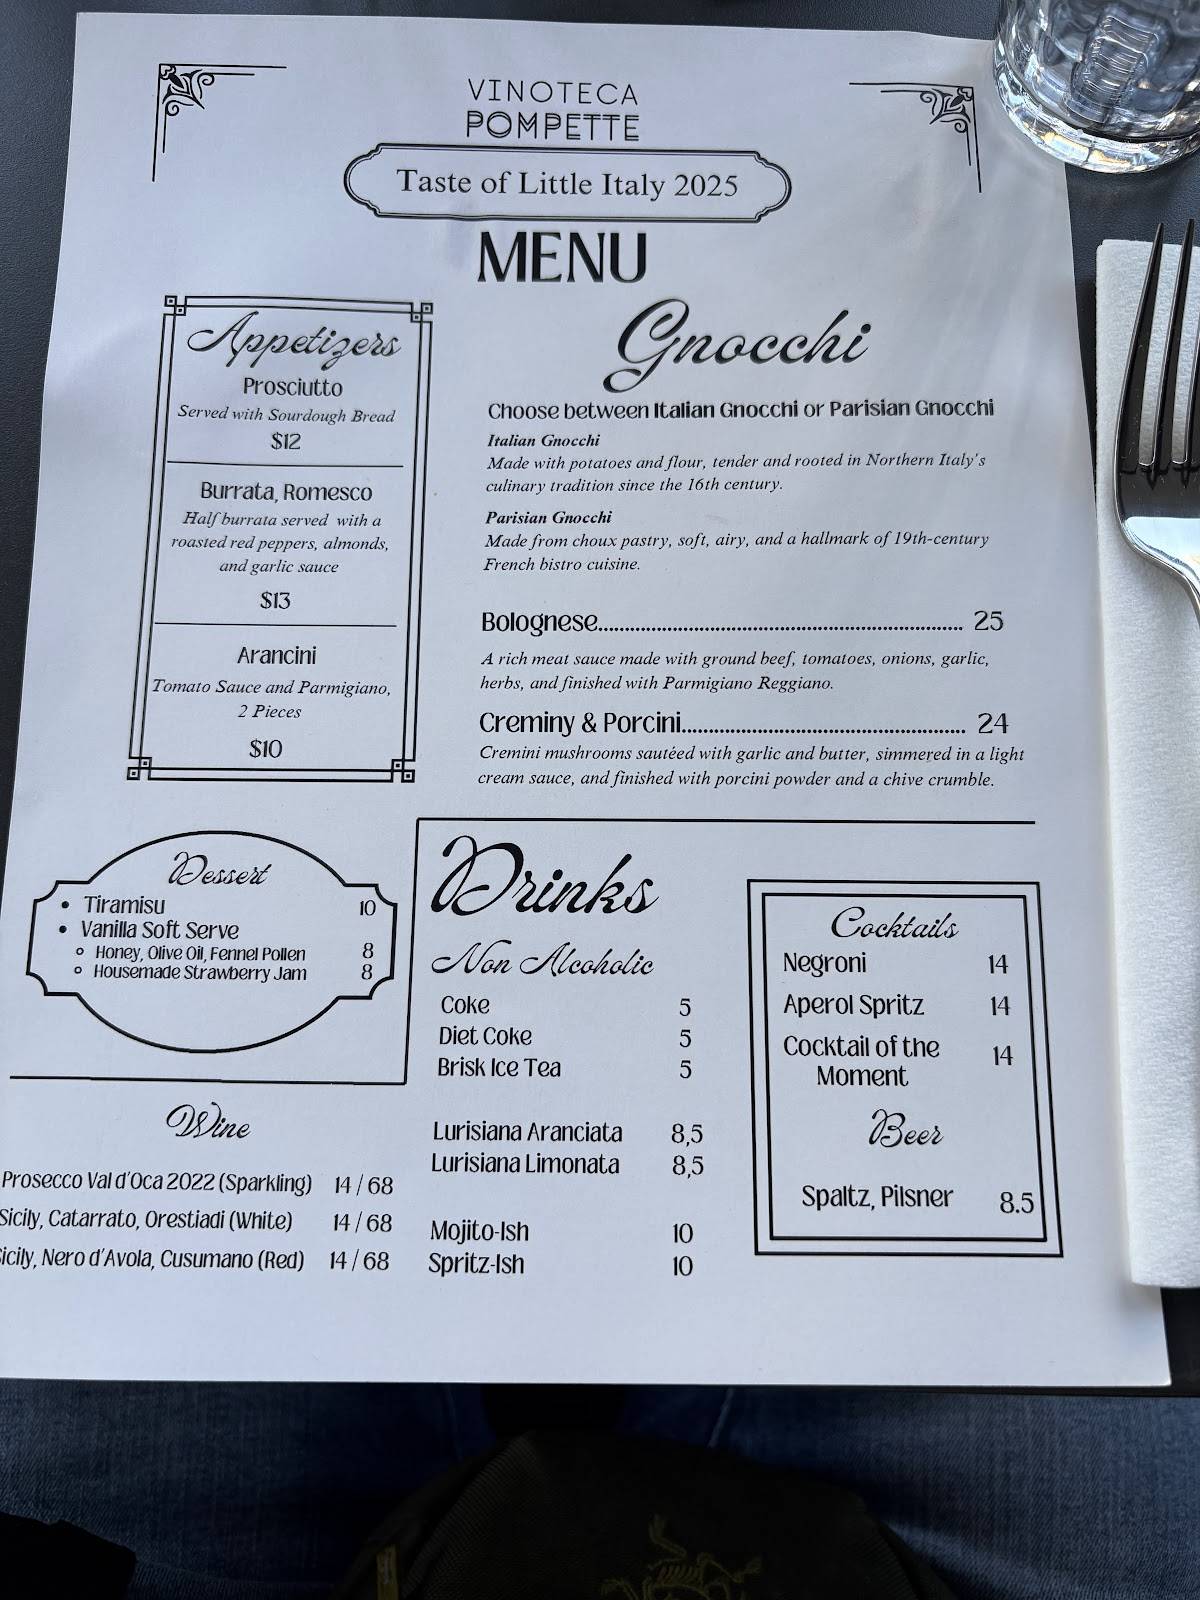 VINOTECA
POMPETTE
Taste of Little Italy 2025
MENU
Appetizers
Prosciutto
Served with Sourdough Bread
$12
Burrata, Romesco
Half burrata served with a
roasted red peppers, almonds,
and garlic sauce
$13
Arancini
Tomato Sauce and Parmigiano,
2 Pieces
$10
Gnocchi
Choose between Italian Gnocchi or Parisian Gnocchi
Italian Gnocchi
Made with potatoes and flour, tender and rooted in Northern Italy's
culinary tradition since the 16th century.
Parisian Gnocchi
Made from choux pastry, soft, airy, and a hallmark of 19th-century
French bistro cuisine.
Bolognese........................................................................ 25
A rich meat sauce made with ground beef, tomatoes, onions, garlic,
herbs, and finished with Parmigiano Reggiano.
Creminy & Porcini........................................................ 24
Cremini mushrooms sautéed with garlic and butter, simmered in a light
cream sauce, and finished with porcini powder and a chive crumble.
Dessert
• Tiramisu 10
• Vanilla Soft Serve
○ Honey, Olive Oil, Fennel Pollen 8
○ Housemade Strawberry Jam 8
Wine
Prosecco Val d'Oca 2022 (Sparkling) 14 / 68
Sicily, Catarrato, Orestiadi (White) 14 / 68
Sicily, Nero d'Avola, Cusumano (Red) 14 / 68
Drinks
Non Alcoholic
Coke 5
Diet Coke 5
Brisk Ice Tea 5
Lurisiana Aranciata 8,5
Lurisiana Limonata 8,5
Mojito-Ish 10
Spritz-Ish 10
Cocktails
Negroni 14
Aperol Spritz 14
Cocktail of the 14
Moment
Beer
Spaltz, Pilsner 8.5